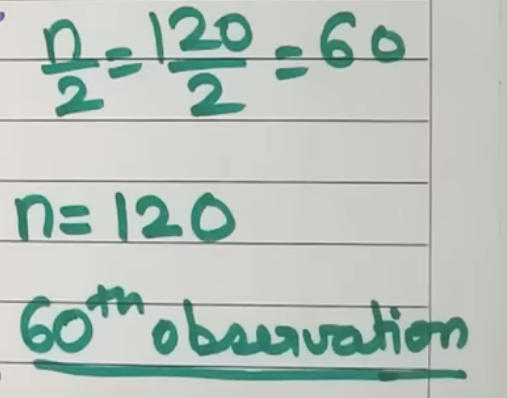 n/2 = 120/2 = 60
n = 120
60th observation